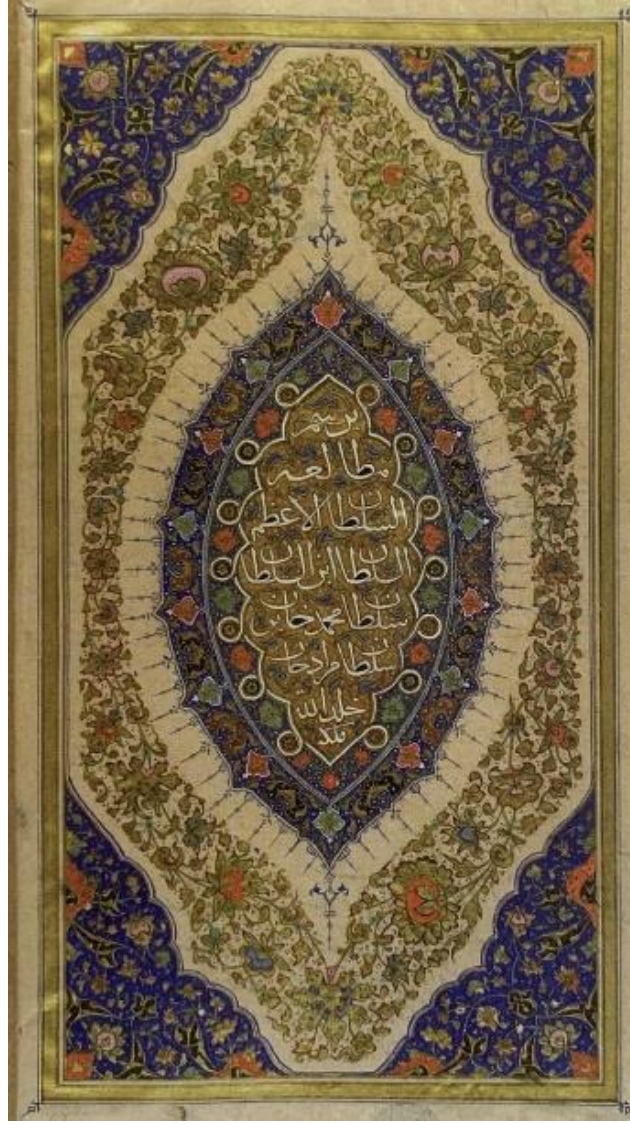 برسم
مطالعه
السلطان الاعظم
السلطان ابن السلطان
سلطان محمد خان بن
سلطان مراد خان
خلد الله
ملكه